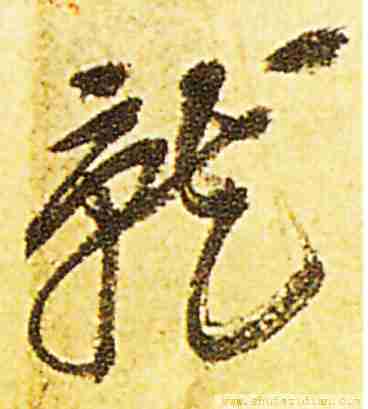 龍
www.shufazidian.com